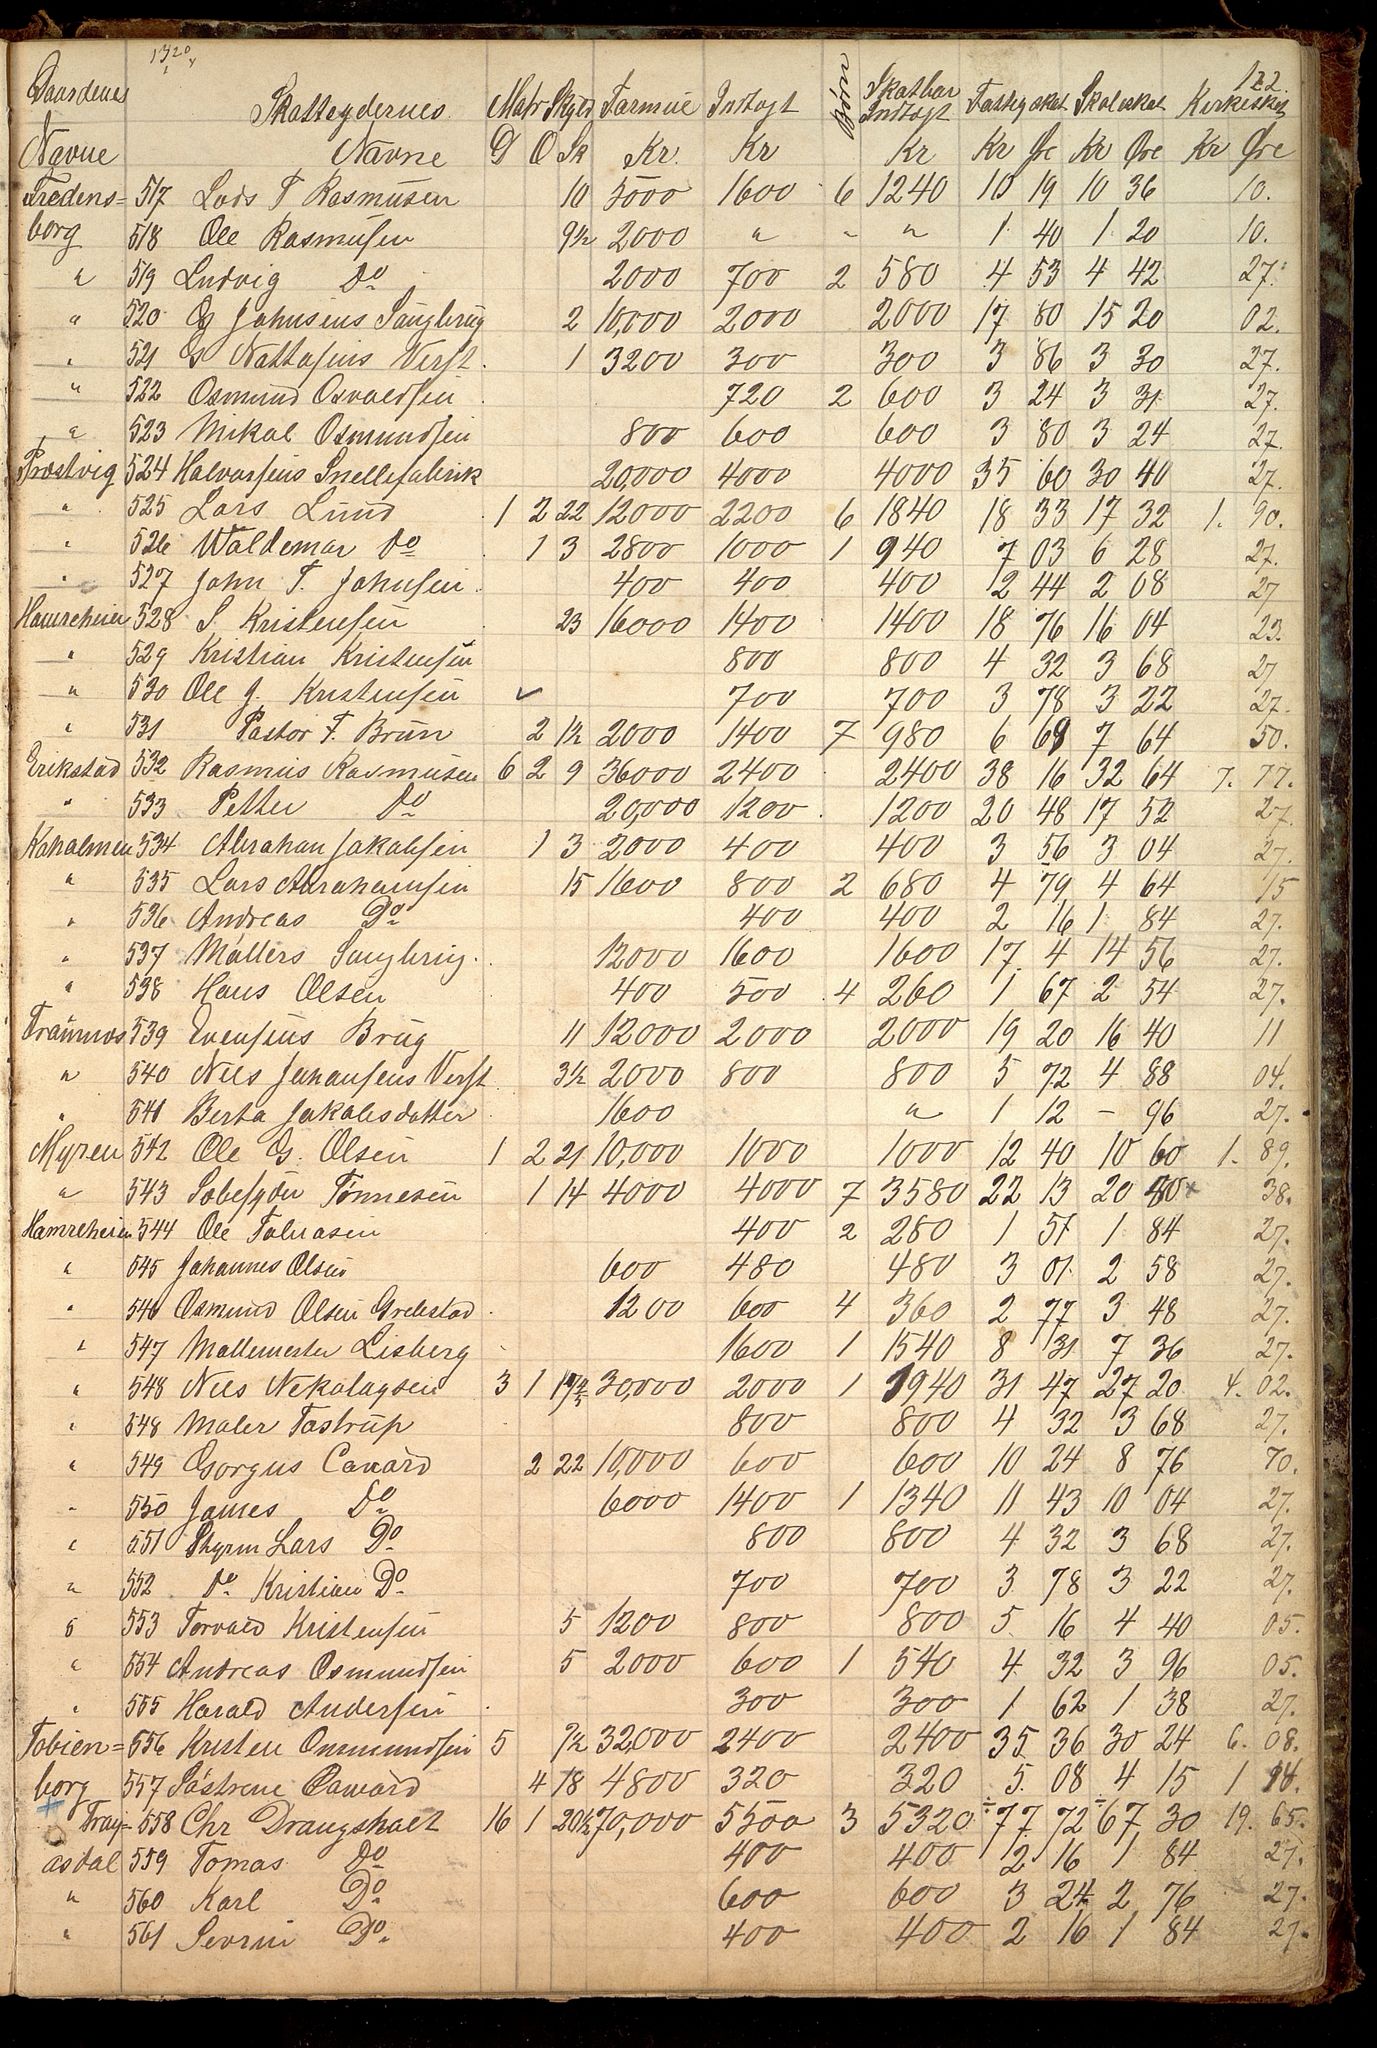 1320
122.
Gaardenes Skatteydernes Matr Skyld Formue Indtægt Børn Skatbar Indtægt Fattigskat Skoleskat Kirkeskat
Navne Navne D O Sk Kr. Kr Kr Kr Øre Kr Øre Kr Øre
Fredens= 517 Lods T Rasmusen 10 5000 1600 6 1240 10 19 10 36 10.
borg 518 Ole Rasmusen 9½ 2000 " " " 1 40 1 20 10.
" 519 Ludvig Do 2000 700 2 580 4 53 4 42 27.
" 520 G Johnsens Saugbrug 2 10,000 2000 2000 17 80 15 20 02.
" 521 G Nattasens Verft 1 3200 300 300 3 86 3 30 27.
" 522 Osmund Osvaldsen 720 2 600 3 24 3 31 27.
" 523 Mikal Osmundsen 800 600 600 3 80 3 24 27.
Præstvig 524 Halvorsens Snellefabrik 20,000 4000 4000 35 60 30 40 27.
" 525 Lars Lund 1 2 22 12000 2200 6 1840 18 33 17 32 1. 90.
" 526 Waldemar Do 1 3 2800 1000 1 940 7 03 6 28 27.
" 527 John T. Johnsen 400 400 400 2 44 2 08 27
Hamreheien 528 S Kristensen 23 16000 1400 1400 18 76 16 04 23.
" 529 Kristian Kristensen 800 800 4 32 3 68 27
" 530 Ole J. Kristensen ✓ 700 700 3 78 3 22 27.
" 531 Pastor F. Brun 2 1½ 2000 1400 7 980 6 69 7 64 50.
Erikstad 532 Rasmus Rasmusen 6 2 9 36000 2400 2400 38 16 32 64 7. 77.
" 533 Petter Do 20,000 1200 1200 20 48 17 52 27.
Kaholmen 534 Abraham Jakobsen 1 3 2000 400 400 3 56 3 04 27.
" 535 Lars Abrahamsen 15 1600 800 2 680 4 79 4 64 15
" 536 Andreas Do 400 400 2 16 1 84 27.
" 537 Møllers Saugbrug. 12000 1600 1600 17. 4 14 56 27.
" 538 Hans Olsen 400 500 4 260 1 67 2 54 27.
539 Evensens Brug 11 12000 2000 2000 19 20 16 40 11
" 540 Nils Johansens Verft 3½ 2000 800 800 5 72 4 88 04.
" 541 Berta Jakobsdatter 1600 " 1 12 – 96 27.
Myren 542 Ole G. Olsen 1 2 21 10,000 1000 1000 12 40 10 60 1. 89.
" 543 Tønnesen 1 14 4000 4000 7 3580 22 13 20 80 38.
Hamreheien 544 Ole 400 2 280 1 51 1 84 27.
" 545 Johannes Olsen 600 480 480 3 01 2 58 27.
" 546 Osmund Olsen Grebstad 1200 600 4 360 2 77 3 48 27.
" 547 Møllemester Lisberg 1600 1 1540 8 31 7 36 27.
" 548 Nils Nekolaysen 3 1 30,000 2000 1 1940 31 47 27 20 4. 02.
" 548 Maler Tastrup 800 800 4 32 3 68 27.
" 549 Gorgus Cawárd 2 22 10,000 600 600 10 24 8 76 70.
" 550 James Do 6000 1400 1 1340 11 43 10 04 27.
" 551 Lars Do 800 800 4 32 3 68 27.
" 552 Do Kristian Do 700 700 3 78 3 22 27.
" 553 Torvald Kristensen 5 1200 800 800 5. 16 4 40 05.
" 554 Andreas Osmundsen 5 2000 600 1 540 4 32 3 96 05.
" 555 Harald Andersen 300 300 1 62 1 38 27.
Tobien= 556 Kristen Ommundsen 5 7½ 32,000 2400 2400 35 36 30 24 6. 08.
borg 557 Søstrene Cawárd 4 18 4800 320 320 5. 08 4 15 1 14.
558 Chr Drangsholt 16 1 20½ 70,000 5500 3 5320 77 72 67 30 19. 65.
559 Tomas Do 400 400 2 16 1 84 27.
" 560 Karl Do 600 600 3 24 2 76 27.
" 561 Sevrin Do 400 400 2 16 1 84 27.